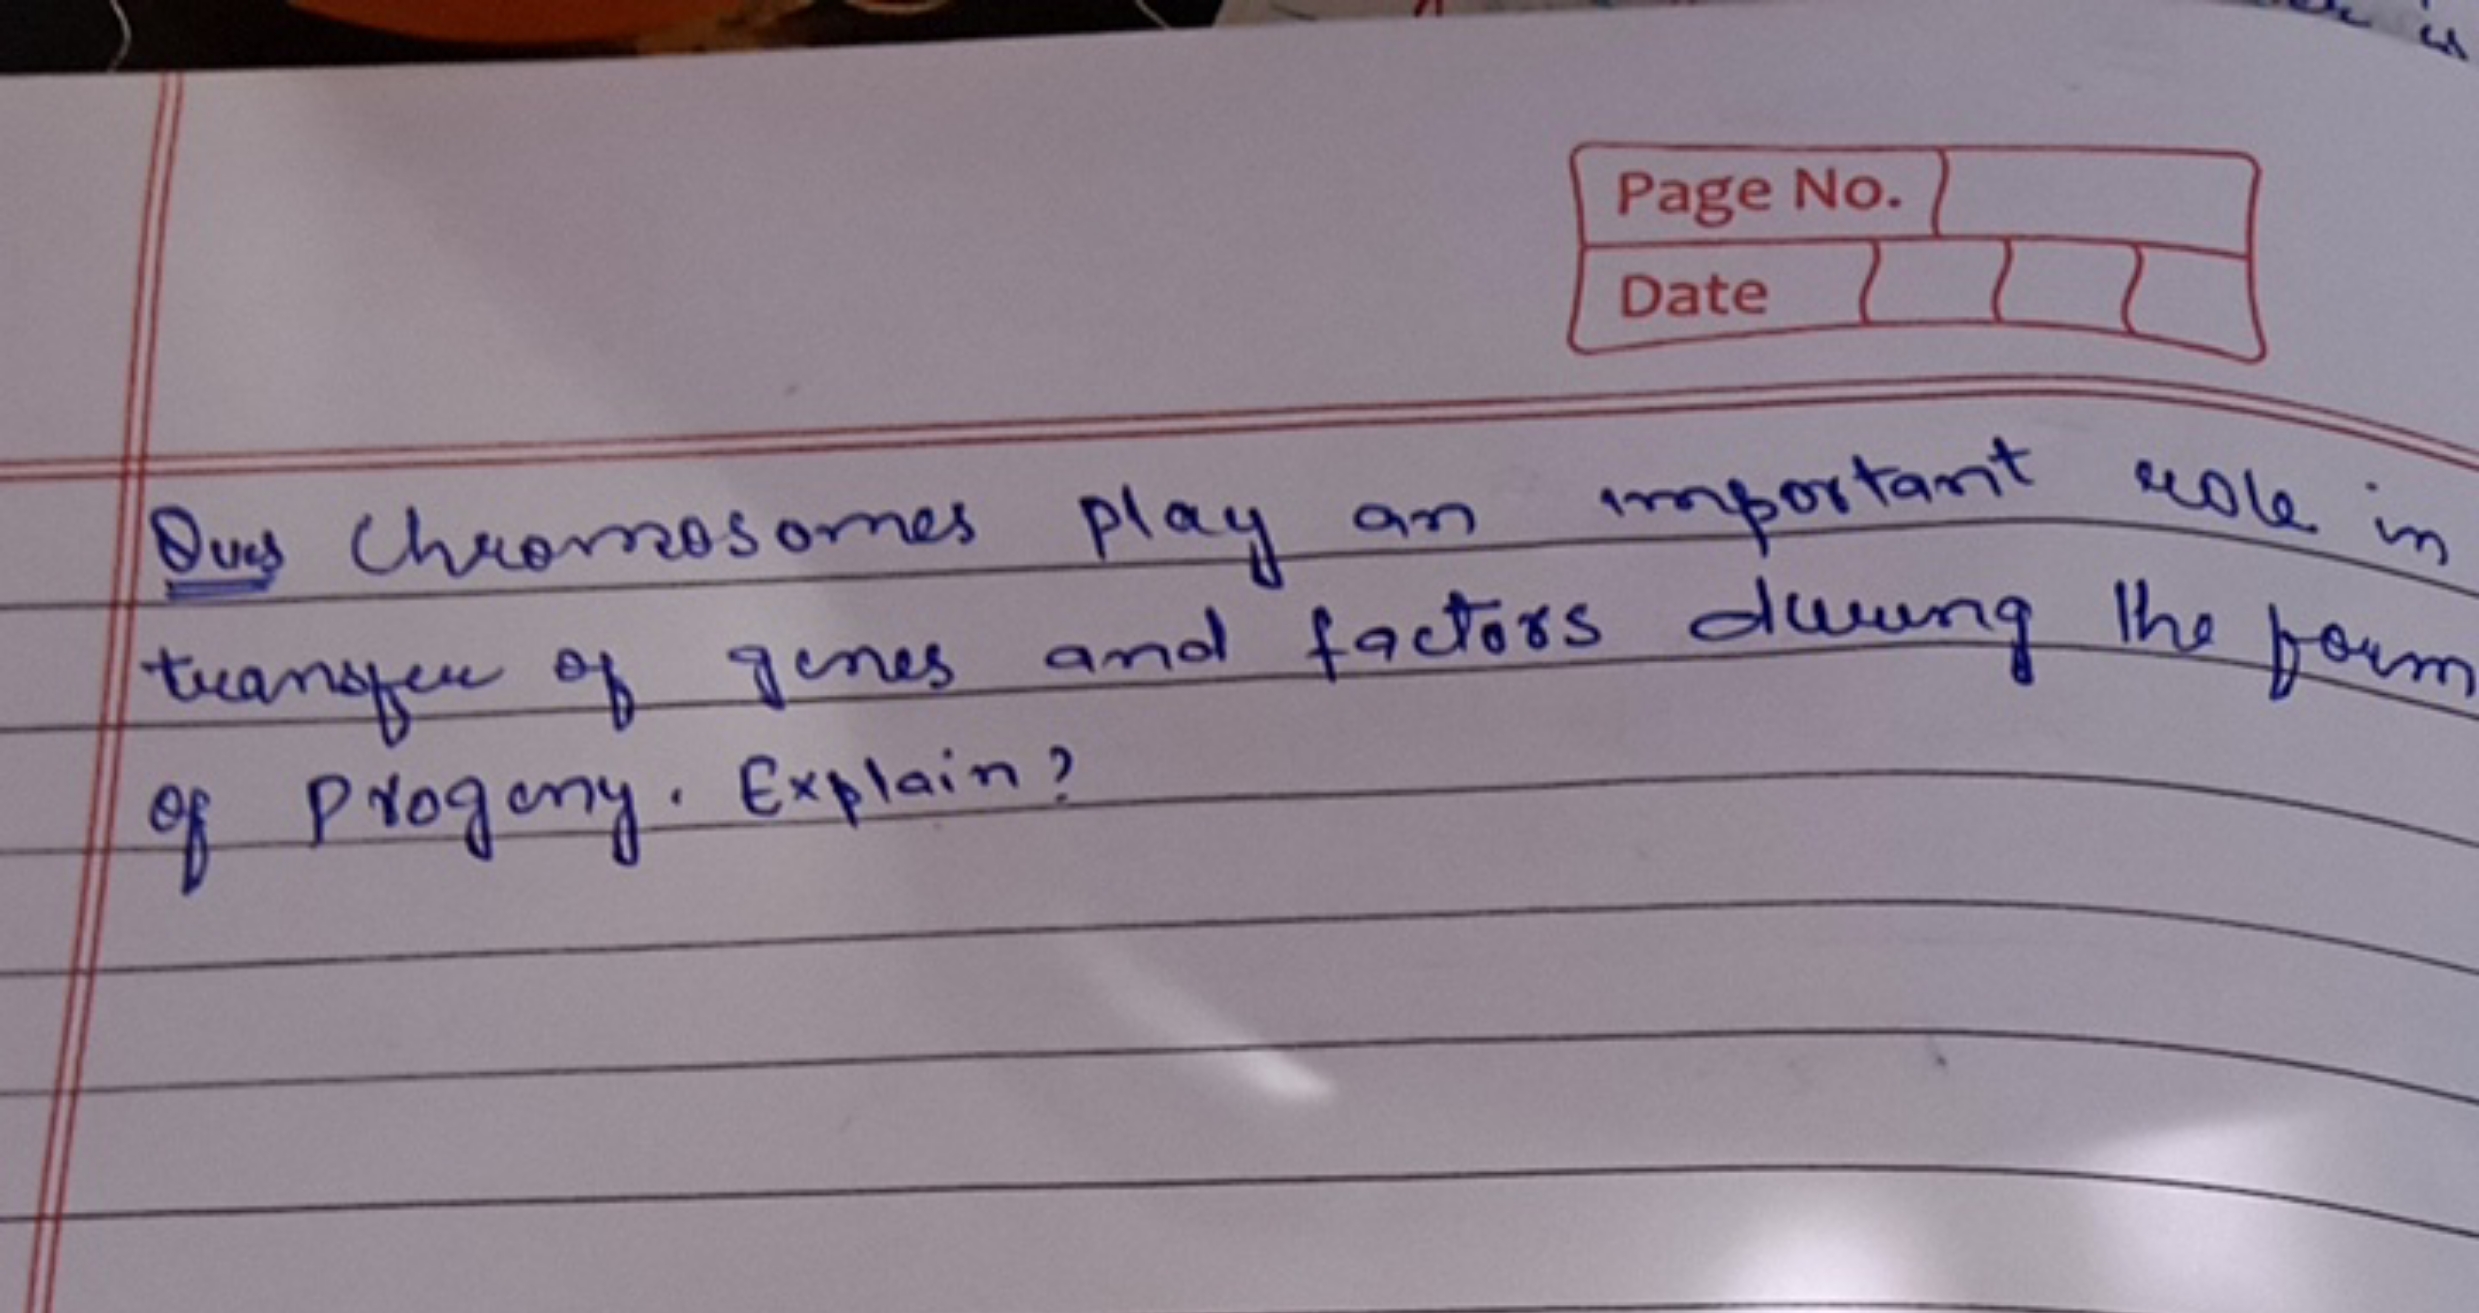 Page No.
Date
Ques Chromosomes play an important role in
transfer of genes and factors during the form
of Progeny. Explain?